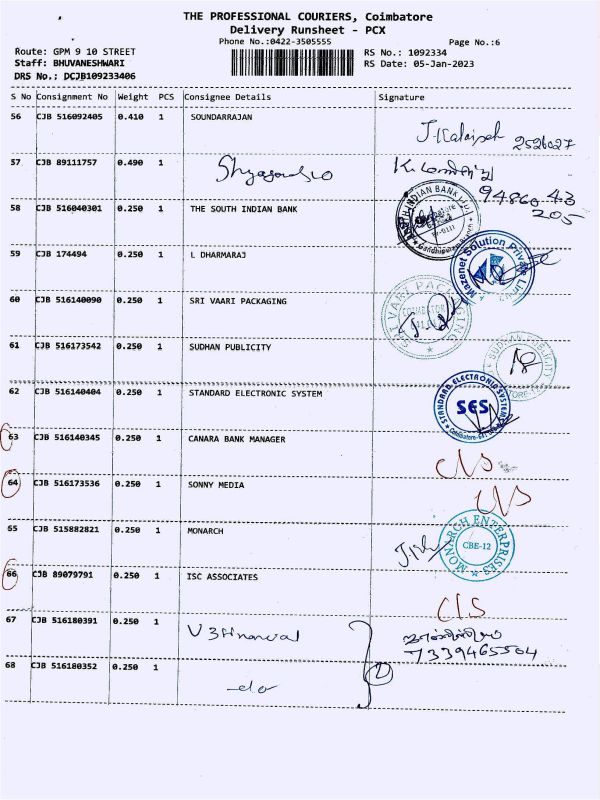 THE PROFESSIONAL COURIERS, Coimbatore
Delivery Runsheet - PCX
Phone No.:0422-3505555
Page No.:6
Route: GPM 9 10 STREET
RS No.: 1092334
Staff: BHUVANESHWARI
RS Date: 05-Jan-2023
DRS No.: DCJB109233406
S No Consignment No Weight PCS Consignee Details Signature
56 CJB 516092405 0.410 1 SOUNDARRAJAN
2526027
57 CJB 89111757 0.490 1
94860 43
205
58 CJB 516040301 0.250 1 THE SOUTH INDIAN BANK
INDIAN BANK
59 CJB 174494 0.250 1 L DHARMARAJ
Mazenet Solution Private
60 CJB 516140090 0.250 1 SRI VAARI PACKAGING
61 CJB 516173542 0.250 1 SUDHAN PUBLICITY
62 CJB 516140404 0.250 1 STANDARD ELECTRONIC SYSTEM
STANDARD ELECTRONIC SYSTEMS
SES
63 CJB 516140345 0.250 1 CANARA BANK MANAGER
64 CJB 516173536 0.250 1 SONNY MEDIA
65 CJB 515882821 0.250 1 MONARCH
MONARCH ENTERPRISES
CBE-12
66 CJB 89079791 0.250 1 ISC ASSOCIATES
C/S
67 CJB 516180391 0.250 1 V3Financial
7339465504
68 CJB 516180352 0.250 1 -do
2